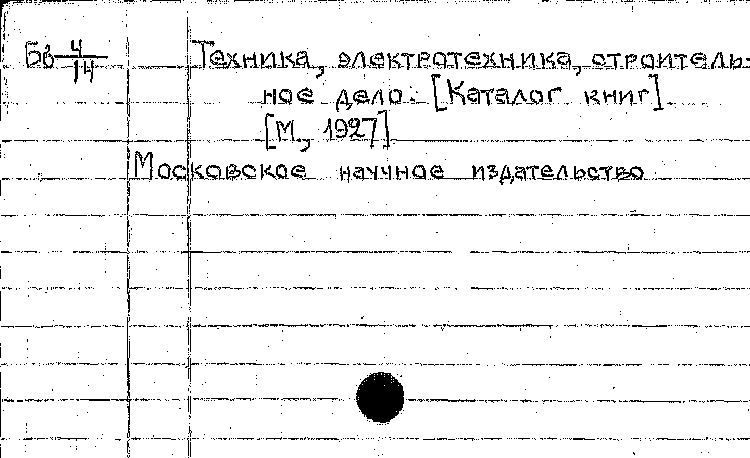 Бв 4/14 Техника, электротехника, строитель-
ное дело. [Каталог книг].
[М., 1927]
Московское научное издательство